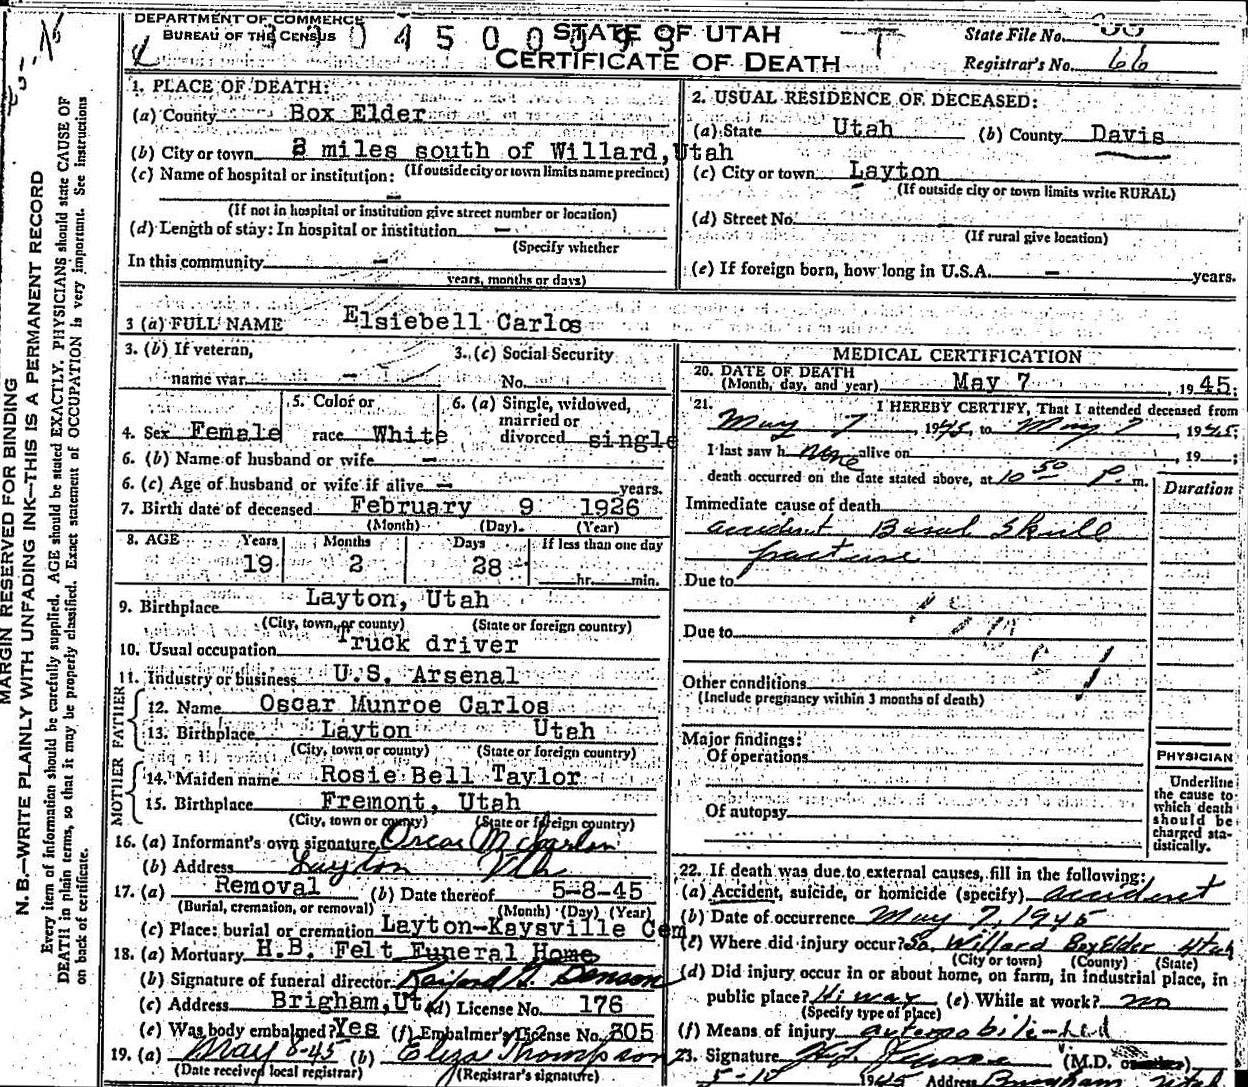 DEPARTMENT OF COMMERCE
BUREAU OF THE CENSUS
STATE OF UTAH
CERTIFICATE OF DEATH
State File No.
Registrar's No. 66
MARGIN RESERVED FOR BINDING
N. B.—WRITE PLAINLY WITH UNFADING INK—THIS IS A PERMANENT RECORD
Every item of information should be carefully supplied. AGE should be stated EXACTLY. PHYSICIANS should state CAUSE OF
DEATH in plain terms, so that it may be properly classified. Exact statement of OCCUPATION is very important. See instructions
on back of certificate.
1. PLACE OF DEATH:
(a) County Box Elder
(b) City or town 3 miles south of Willard, Utah
(c) Name of hospital or institution: (If outside city or town limits name precinct)
—
(If not in hospital or institution give street number or location)
(d) Length of stay: In hospital or institution —
(Specify whether
In this community —
years, months or days)
2. USUAL RESIDENCE OF DECEASED:
(a) State Utah (b) County Davis
(c) City or town Layton
(If outside city or town limits write RURAL)
(d) Street No.
(If rural give location)
(e) If foreign born, how long in U.S.A. — years.
3 (a) FULL NAME Elsiebell Carlos
3. (b) If veteran, 3. (c) Social Security
name war — No.
4. Sex Female 5. Color or race White 6. (a) Single, widowed, married or divorced single
6. (b) Name of husband or wife —
6. (c) Age of husband or wife if alive — years.
7. Birth date of deceased February 9 1926
(Month) (Day) (Year)
8. AGE Years Months Days If less than one day
19 2 28 hr. min.
9. Birthplace Layton, Utah
(City, town, or county) (State or foreign country)
10. Usual occupation Truck driver
11. Industry or business U.S. Arsenal
FATHER
12. Name Oscar Munroe Carlos
13. Birthplace Layton Utah
(City, town or county) (State or foreign country)
MOTHER
14. Maiden name Rosie Bell Taylor
15. Birthplace Fremont, Utah
(City, town or county) (State or foreign country)
16. (a) Informant's own signature Oscar M Carlos
(b) Address Layton Utah
17. (a) Removal (b) Date thereof 5-8-45
(Burial, cremation, or removal) (Month) (Day) (Year)
(c) Place: burial or cremation Layton-Kaysville Cem
18. (a) Mortuary H.B. Felt Funeral Home
(b) Signature of funeral director
(c) Address Brigham, Ut. (d) License No. 176
(e) Was body embalmed? Yes (f) Embalmer's License No. 305
19. (a) May 8-45 (b) Eliza Thompson
(Date received local registrar) (Registrar's signature)
MEDICAL CERTIFICATION
20. DATE OF DEATH
(Month, day, and year) May 7, 1945:
21. I HEREBY CERTIFY, That I attended deceased from
May 7 1945, to May 7 1945:
I last saw h none alive on , 19 ;
death occurred on the date stated above, at 10 50 P. m.
Duration
Immediate cause of death
accident Basal Skull
fracture
Due to
Due to
Other conditions
(Include pregnancy within 3 months of death)
Major findings:
Of operations
Of autopsy
PHYSICIAN
Underline
the cause to
which death
should be
charged sta-
tistically.
22. If death was due to external causes, fill in the following:
(a) Accident, suicide, or homicide (specify) accident
(b) Date of occurrence May 7, 1945
(c) Where did injury occur? So. Willard Box Elder Utah
(City or town) (County) (State)
(d) Did injury occur in or about home, on farm, in industrial place, in
public place? Hi way (e) While at work? no
(Specify type of place)
(f) Means of injury automobile
23. Signature (M.D.
5-10 1945 Address Brigham Utah